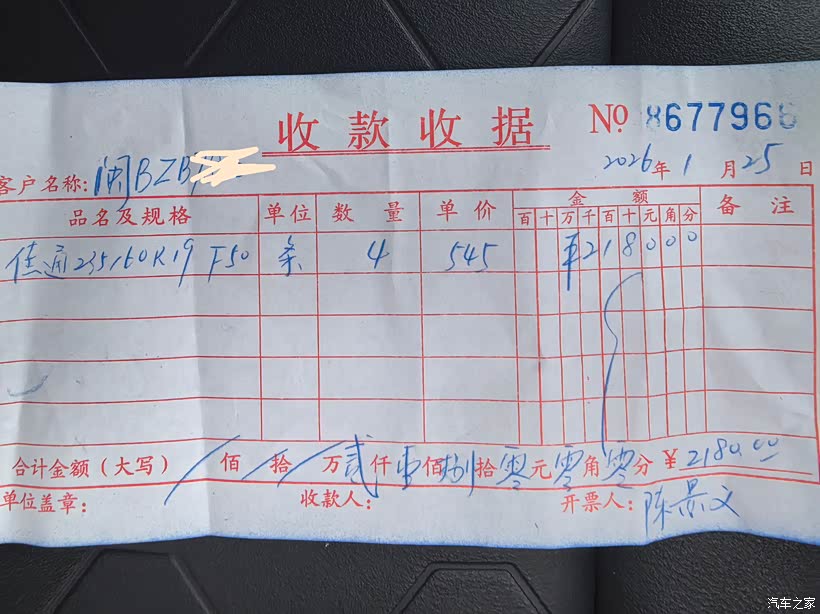 收款收据 No 8677966
2026年1月25日
客户名称：闽BZB
品名及规格 单位 数量 单价 金额 备注
百 十 万 千 百 十 元 角 分
佳通235/60R19 F50 条 4 545 ¥218000
合计金额（大写） / 佰 / 拾 / 万贰仟壹佰捌拾零元零角零分 ¥2180.00
单位盖章： 收款人： 开票人：陈景文
汽车之家